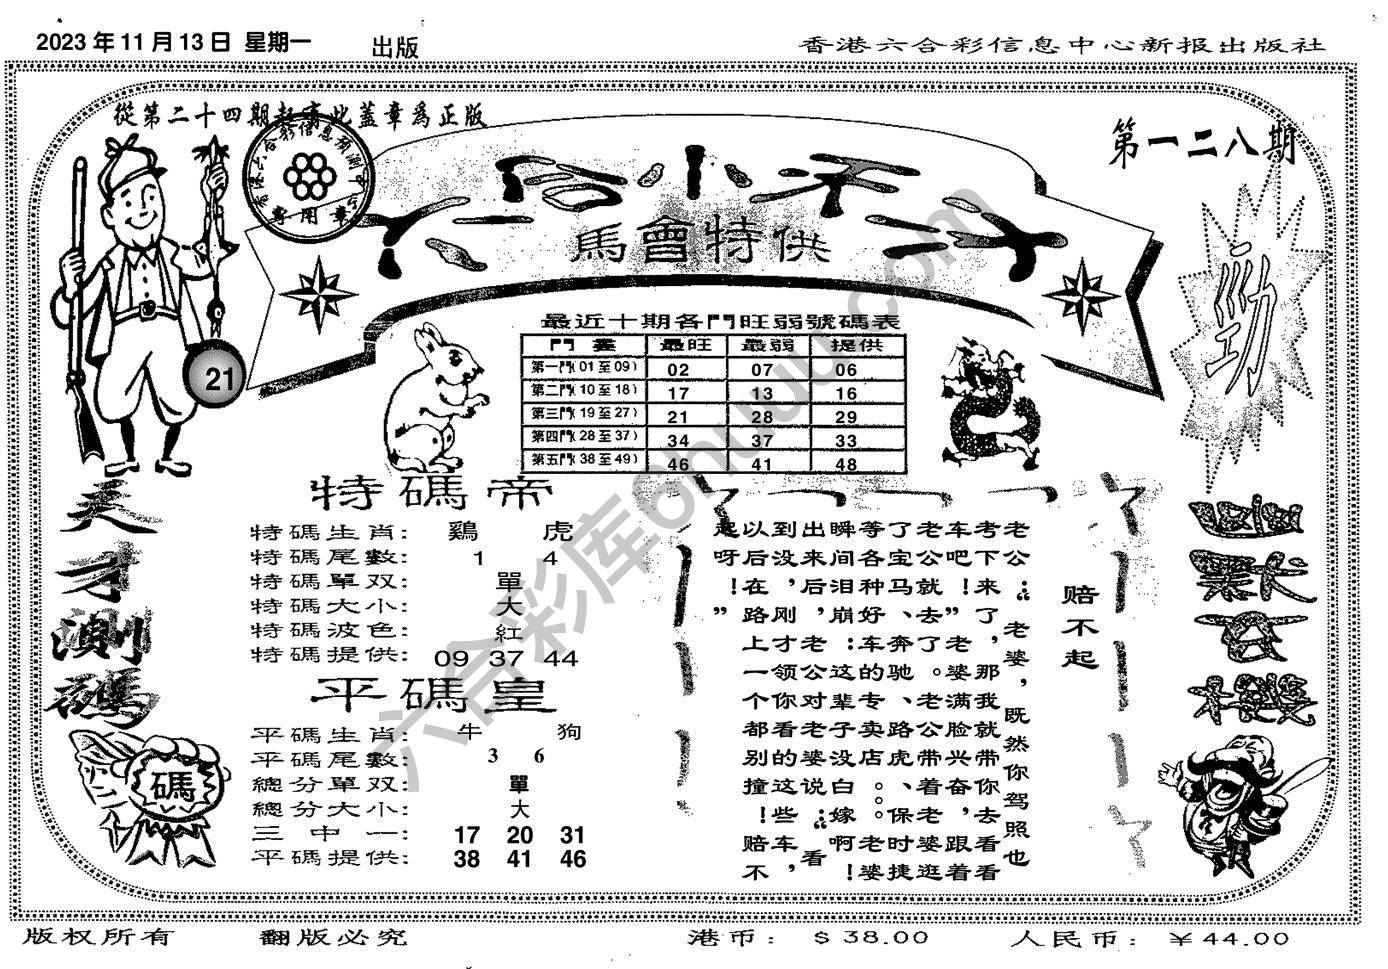 2023年11月13日 星期一 出版
香港六合彩信息中心新报出版社
從第二十四期起有此蓋章爲正版
第一二八期
馬會特供
勁
21
最近十期各門旺弱號碼表
門 最旺 最弱 提供
第一門(01至09) 02 07 06
第二門(10至18) 17 13 16
第三門(19至27) 21 28 29
第四門(28至37) 34 37 33
第五門(38至49) 46 41 48
天才測碼
特碼帝
特碼生肖: 鷄 虎
特碼尾數: 1 4
特碼單双: 單
特碼大小: 大
特碼波色: 紅
特碼提供: 09 37 44
平碼皇
平碼生肖: 牛 狗
平碼尾數: 3 6
總分單双: 單
總分大小: 大
三中一: 17 20 31
平碼提供: 38 41 46
碼
赔不起
老公:“老婆,既然你驾照也
考下来了,那我就带你去看看
车吧!”老婆满脸兴奋,跟着
老公就去了。老公带着老婆逛
了宝马、奔驰、路虎、保时捷
等各种好车的专卖店。。老婆
瞬间泪崩:这辈子没白嫁啊!
出来后,老公对老婆说:“看
到没,刚才领你看的这些车,
以后在路上一个都别撞!赔不
起呀!”
版权所有 翻版必究 港币: $38.00 人民币: ￥44.00
六合彩库6huu.com